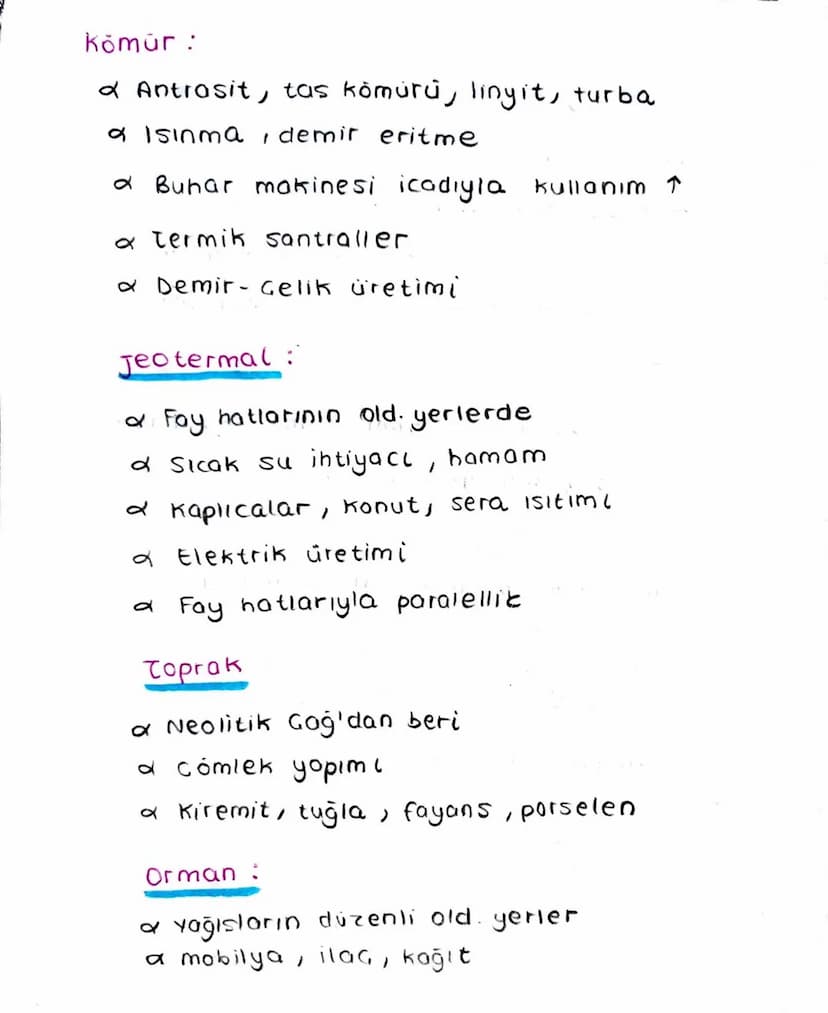 Kömür :
α Antrasit, tas kömürü, linyit, turba
α Isınma, demir eritme
α Buhar makinesi icadıyla kullanım ↑
α Termik santraller
α Demir - Çelik üretimi
Jeotermal :
α Fay hatlarının old. yerlerde
α Sıcak su ihtiyacı, hamam
α Kaplıcalar, konut, sera ısıtımı
α Elektrik üretimi
α Fay hatlarıyla paralellik
Toprak
α Neolitik Çağ'dan beri
α Çömlek yapımı
α Kiremit, tuğla, fayans, porselen
Orman :
α Yağışların düzenli old. yerler
α mobilya, ilaç, kağıt